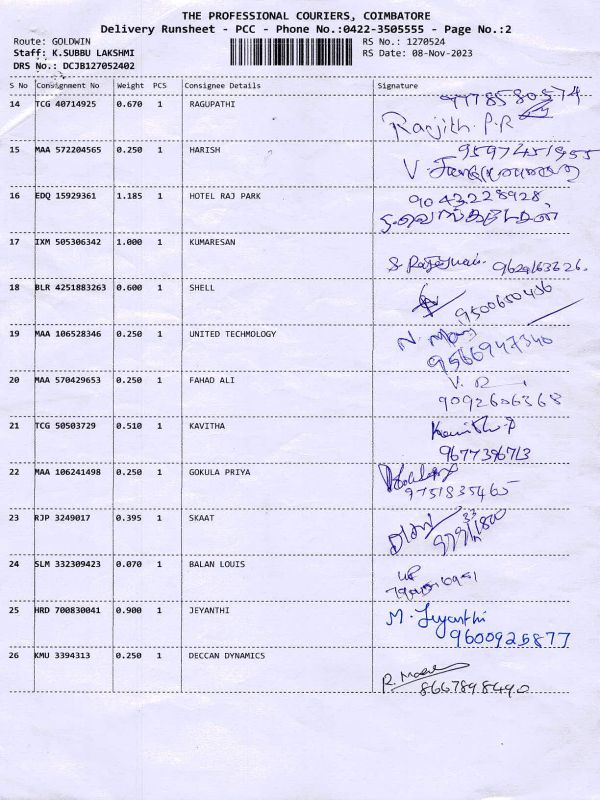 THE PROFESSIONAL COURIERS, COIMBATORE
Delivery Runsheet - PCC - Phone No.:0422-3505555 - Page No.:2
Route: GOLDWIN
RS No.: 1270524
Staff: K.SUBBU LAKSHMI
RS Date: 08-Nov-2023
DRS No.: DCJB127052402
S No Consignment No Weight PCS Consignee Details Signature
14 TCG 40714925 0.670 1 RAGUPATHI
Ranjith. P.R
15 MAA 572204565 0.250 1 HARISH
16 EDQ 15929361 1.185 1 HOTEL RAJ PARK 9043228928,
17 IXM 505306342 1.000 1 KUMARESAN
9629163626.
18 BLR 4251883263 0.600 1 SHELL
9500650436
19 MAA 106528346 0.250 1 UNITED TECHMOLOGY
9566947340
20 MAA 570429653 0.250 1 FAHAD ALI
9092606368
21 TCG 50503729 0.510 1 KAVITHA
9677396713
22 MAA 106241498 0.250 1 GOKULA PRIYA
9751835465
23 RJP 3249017 0.395 1 SKAAT
24 SLM 332309423 0.070 1 BALAN LOUIS
25 HRD 700830041 0.900 1 JEYANTHI M. Jeyanthi
9600925877
26 KMU 3394313 0.250 1 DECCAN DYNAMICS
8667898490